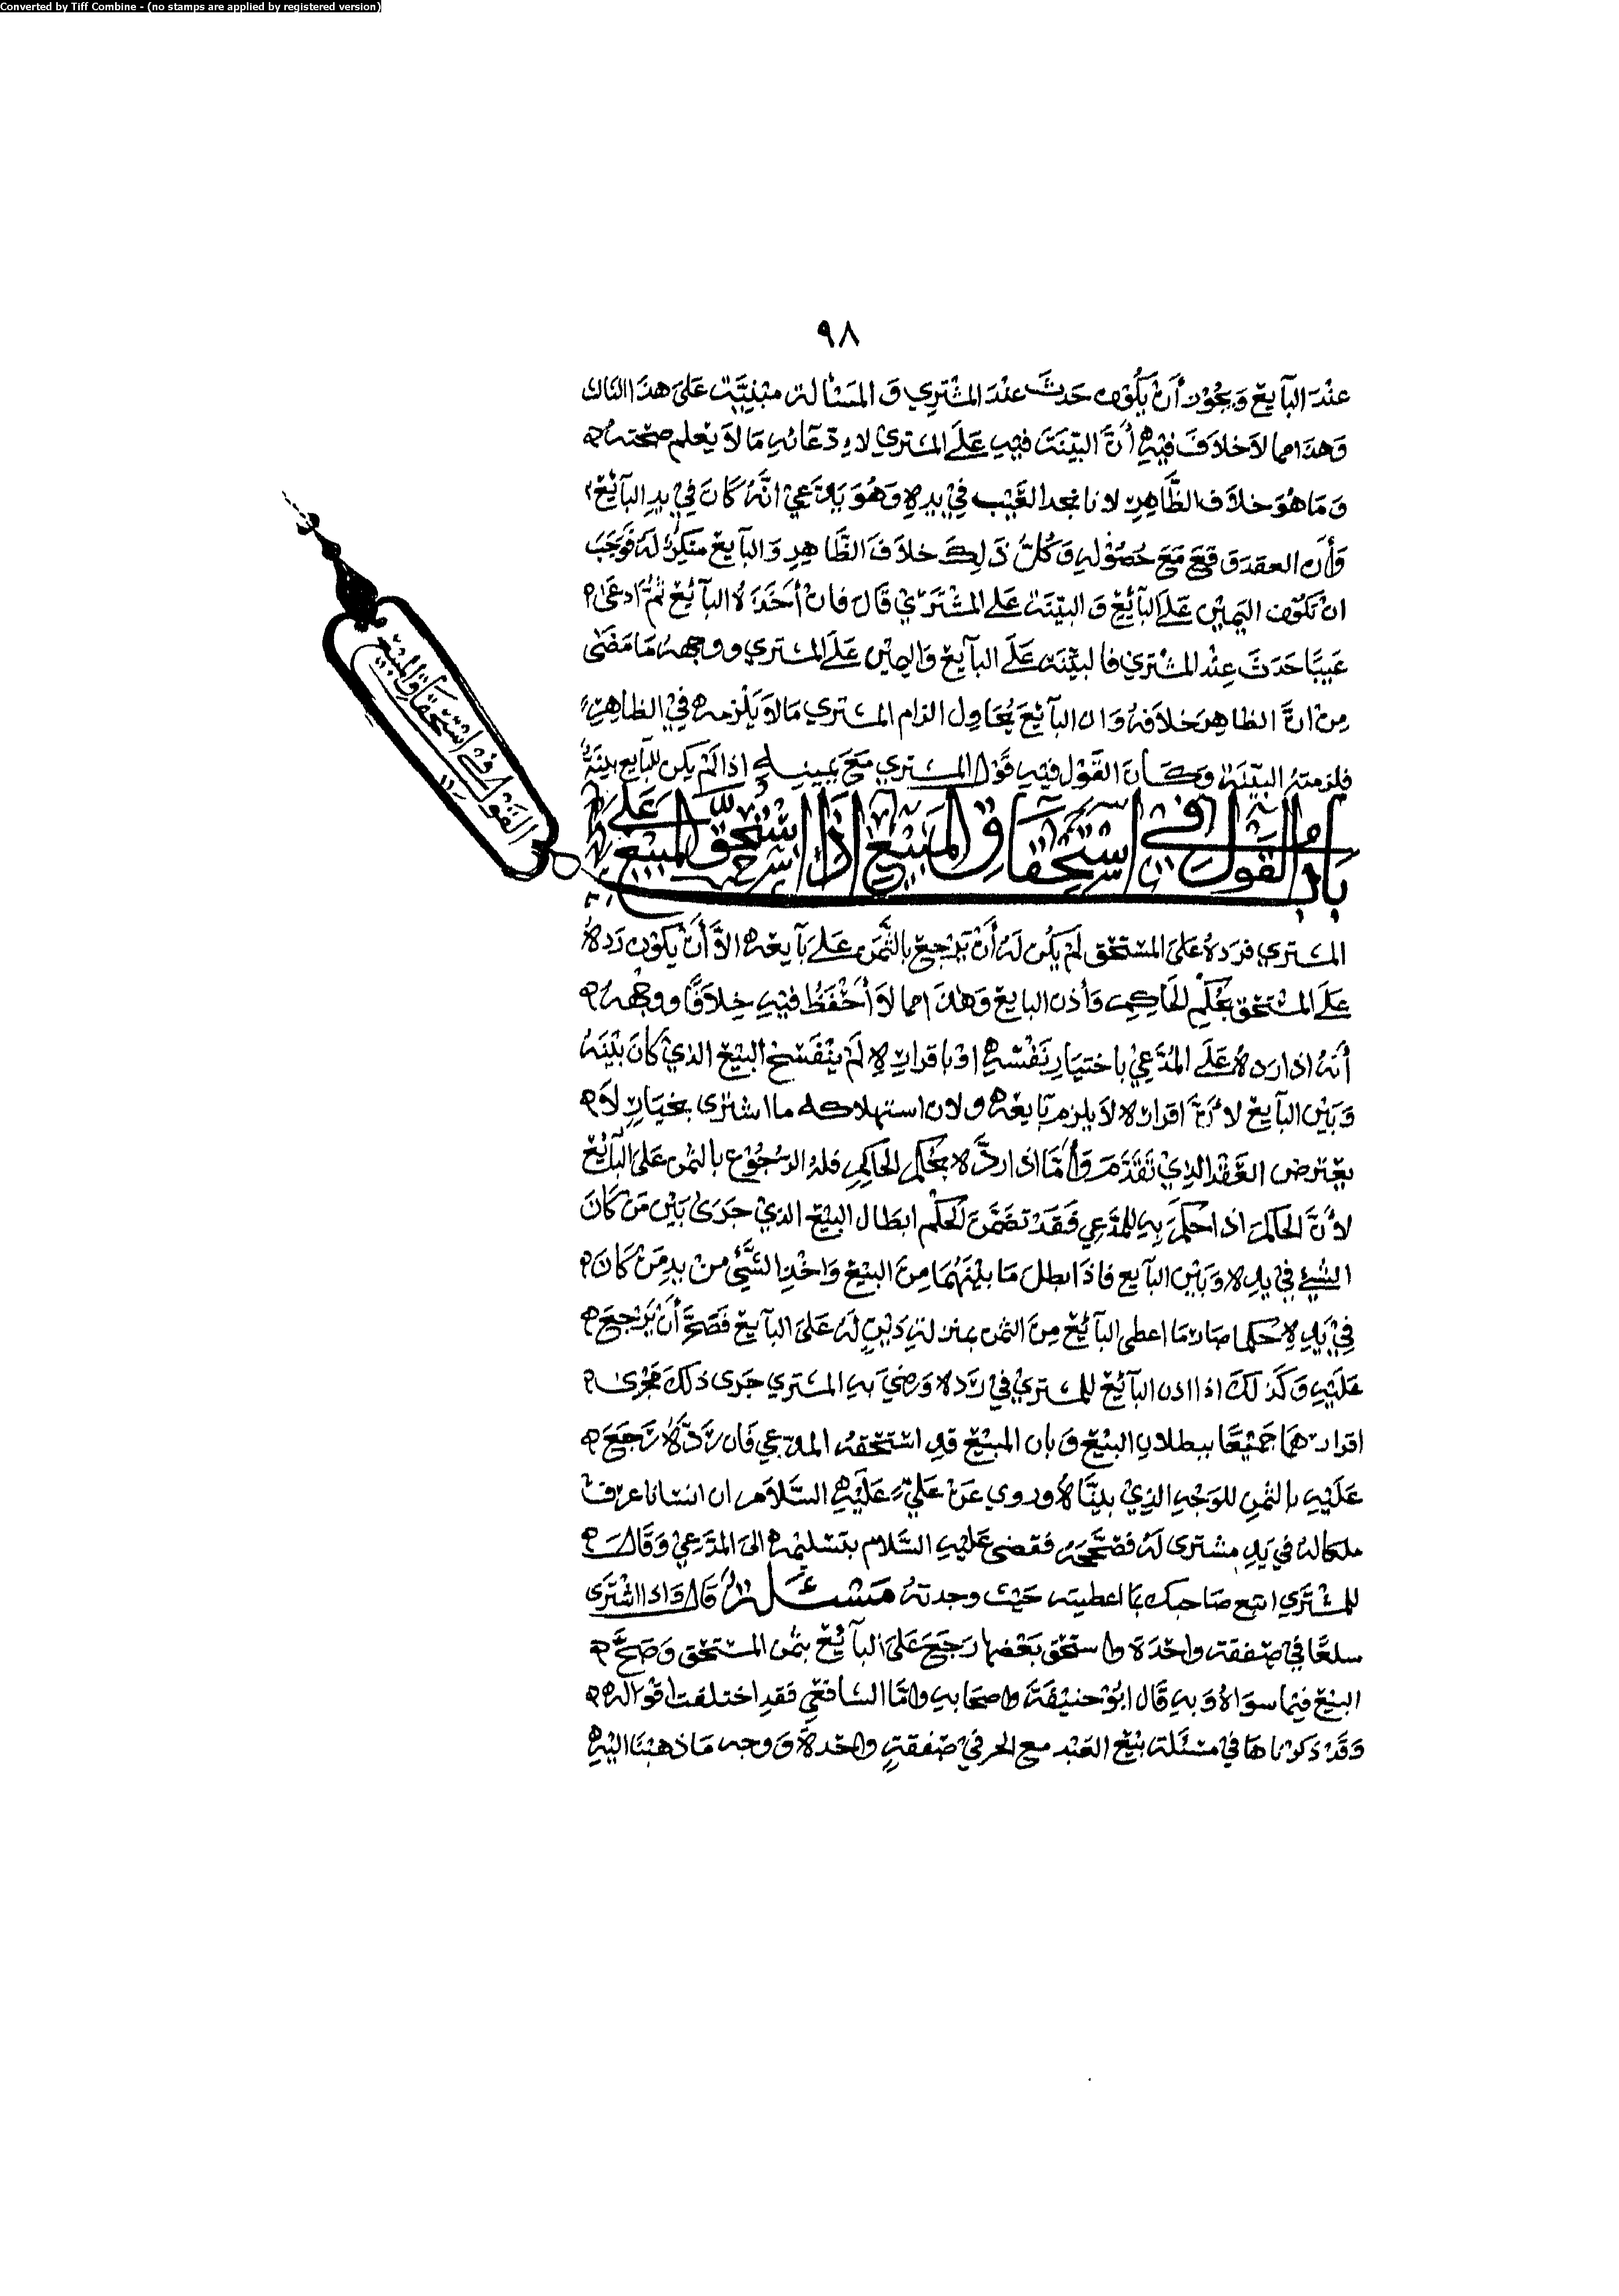 Converted by Tiff Combine - (no stamps are applied by registered version)
٩٨
عند البآيع ويجوز أن يكون حدث عند المشتري والمسألة مبنية على هذا الثالث
وهذا مما لا خلاف فيه أن البينة فيه على المشتري لادعائه ما لا يعلم صحته
وما هو خلاف الظاهر لانا نجد العيب في يده وهو يدعي انه كان في يد البآئع
وأن العقد وقع مع حصوله وكل ذلك خلاف الظاهر والبآيع منكر له فوجب
ان تكون اليمين على البآئع والبينة على المشتري قال فان أخذه البآئع ثم ادعى
عيبا حدث عند المشتري فالبينة على البآيع واليمين على المشتري ووجهه ما مضى
من ان الظاهر خلافه وان البآئع يحاول الزام المشتري مالا يلزمه في الظاهر
فلزمته البينة وكان القول فيه قول المشتري مع يمينه اذا لم يكن للبآيع بينة
باب القول في استحقاق المبيع اذا استحق المبيع على
القول في استحقاق المبيع
المشتري فرده على المستحق لم يكن له أن يرجع بالثمن على بآيعه الا أن يكون رده
على المستحق بحكم الحاكم وأذن البايع وهذا مما لا أحفظ فيه خلافا ووجهه
أنه اذا رده على المدعي باختيار نفسه او باقراره لم ينفسخ البيع الذي كان بينه
وبين البآيع لأن اقراره لا يلزم بآيعه ولان استهلاكه ما اشترى بخياره لا
يعترض العقد الذي تقدم وأما اذا رده بحكم الحاكم فله الرجوع بالثمن على البآئع
لأن الحاكم اذا حكم به للمدعي فقد تضمن الحكم ابطال البيع الذي جرى بين من كان
الشيء في يده وبين البآيع فاذا ابطل ما بينهما من البيع واخذ الشيء من يد من كان
في يده حكما صار ما اعطى البآئع من الثمن بمنزلة دين له على البآيع فصح أن يرجع
عليه وكذلك اذا اذن البآئع للمشتري في رده ورضي به المشتري جرى ذلك مجرى
اقرارهما جميعا ببطلان البيع وبان المبيع قد استحقه المدعي فان رده رجع
عليه بالثمن للوجه الذي بيناه وروي عن علي عليه السلام ان انسانا عرف
ملكا له في يد مشترى له فصححه فقضى عليه السلام بتسليمه الى المدعي وقال
للمشتري اتبع صاحبك بما اعطيته حيث وجدته مسئلة قال واذا اشترى
سلعا في صفقة واحدة واستحق بعضها رجع على البآئع بثمن المستحق وصح
البيع فيما سواه وبه قال ابو حنيفة واصحابه واما الشافعي فقد اختلفت اقواله
وقد ذكرناها في مسئلة بيع العبد مع الحر في صفقة واحدة ووجه ما ذهبنا اليه